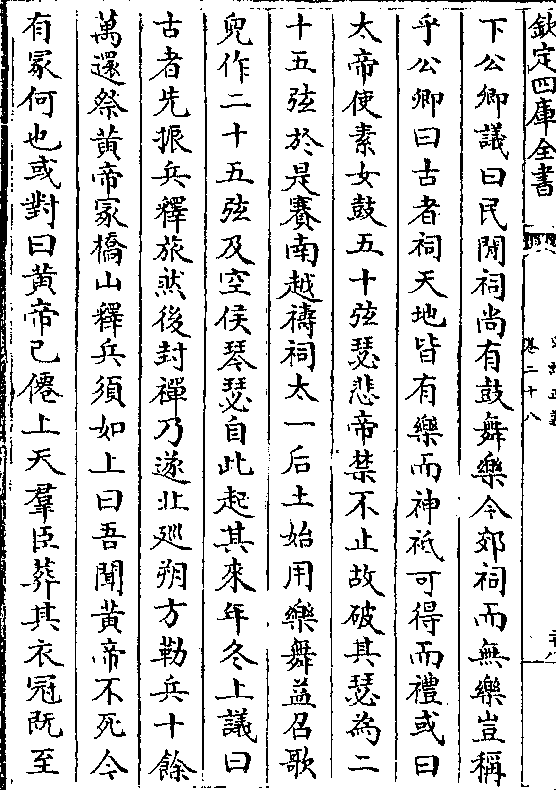 欽定四庫全書
卷二十八
下公卿議曰民閒祠尚有鼓舞樂今郊祠而無樂豈稱
乎公卿曰古者祠天地皆有樂而神祇可得而禮或曰
太帝使素女鼓五十弦瑟悲帝禁不止故破其瑟為二
十五弦於是賽南越禱祠太一后土始用樂舞益召歌
兒作二十五弦及空侯琴瑟自此起其來年冬上議曰
古者先振兵釋旅然後封禪乃遂北廵朔方勒兵十餘
萬還祭黄帝冢橋山釋兵須如上曰吾聞黄帝不死今
有冢何也或對曰黄帝已僊上天羣臣葬其衣冠旣至